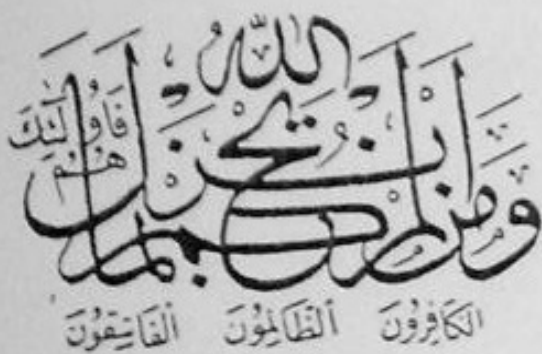 وَمَنْ لَمْ يَحْكُمْ بِمَا أَنْزَلَ اللّٰهُ
فَأُولٰئِكَ
هُمُ
الكَافِرُونَ الظَّالِمُونَ الفَاسِقُونَ